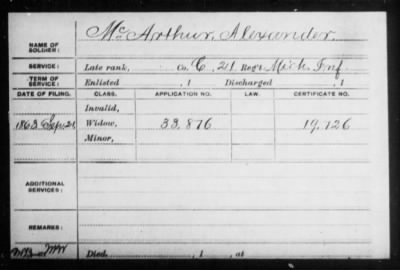 McArthur, Alexander
NAME OF SOLDIER:
SERVICE: Late rank, Co. C, 21 Reg't Mich Inf
TERM OF SERVICE: Enlisted , 1 Discharged , 1
DATE OF FILING. CLASS. APPLICATION NO. LAW. CERTIFICATE NO.
Invalid,
1863 Sep. 21 Widow, 33,876 19,126
Minor,
ADDITIONAL SERVICES:
REMARKS:
Died , 1 , at